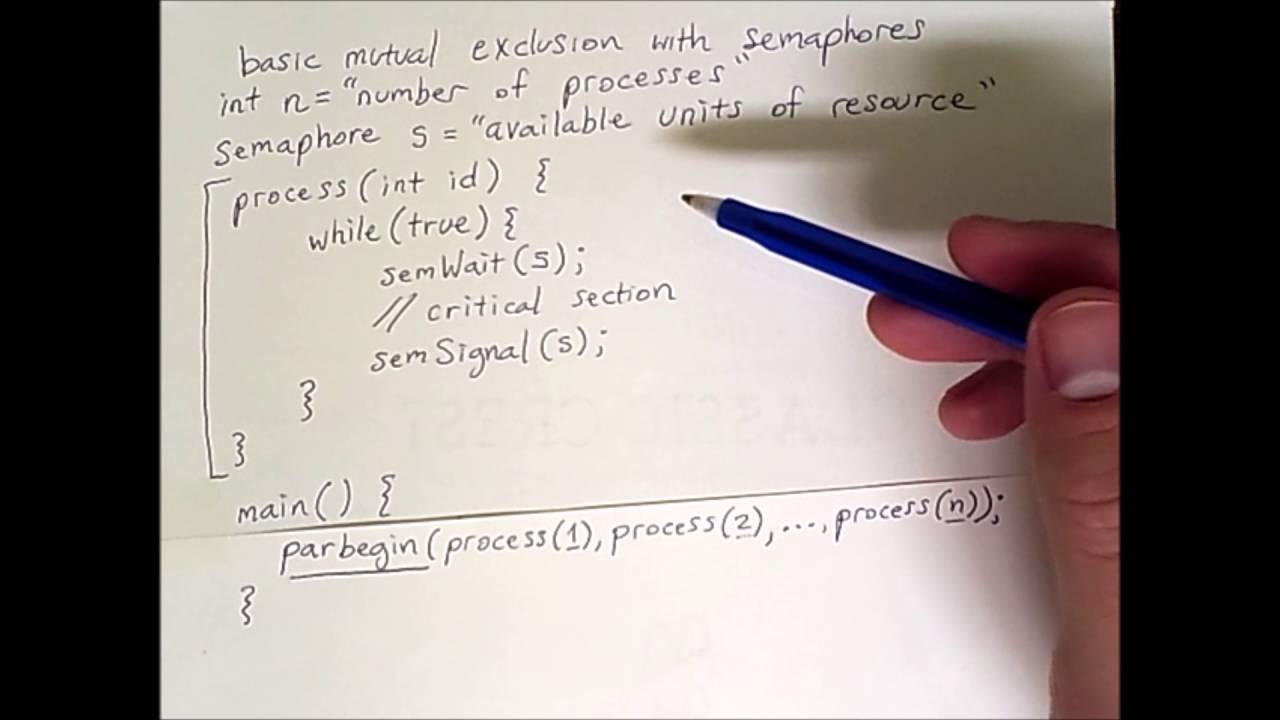 basic mutual exclusion with semaphores
int n = "number of processes"
Semaphore s = "available units of resource"
process(int id) {
while(true) {
semWait(s);
// critical section
semSignal(s);
}
}
main() {
parbegin(process(1), process(2), ..., process(n));
}